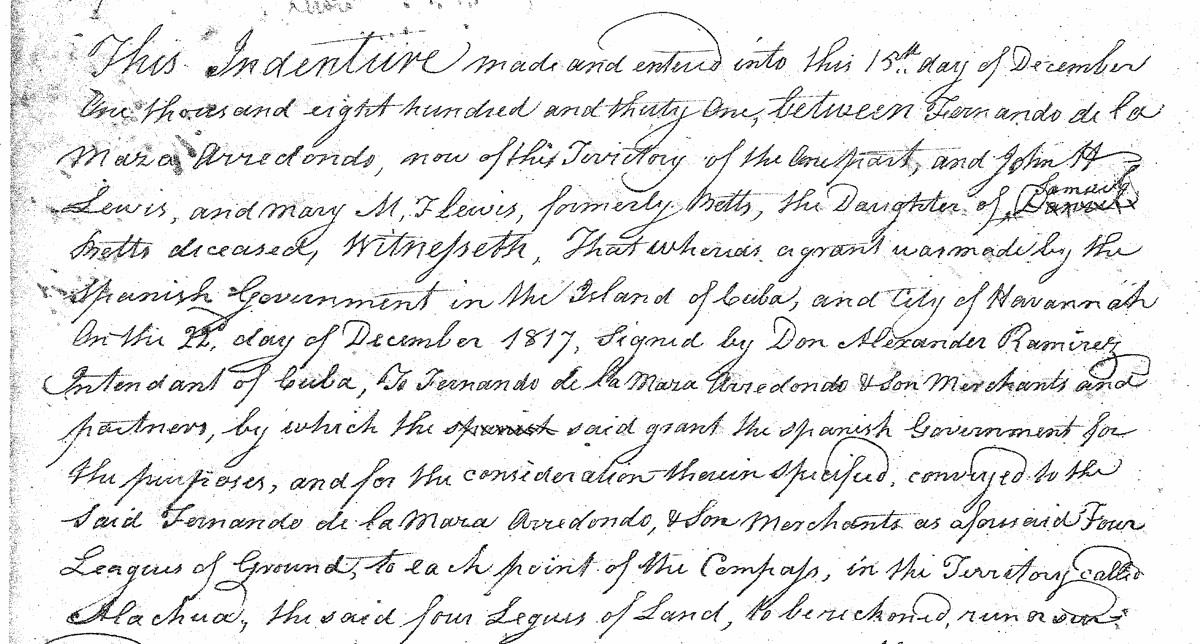 This Indenture made and entered into this 15th day of December
One thousand eight hundred and thirty One, between Fernando de la
Maza Arredondo, now of this Territory of the One part, and John H
Lewis, and Mary M, F Lewis, formerly Betts, the Daughter of Samuel
Betts diceased, Witnesseth, That whereas a grant was made by the
Spanish Government in the Island of Cuba, and City of Havannah
On the 22d, day of December 1817, Signed by Don Alexander Ramirez
Intendant of Cuba, To Fernando de la Maza Arredondo & Son Merchants and
partners, by which the spanish said grant the spanish Government for
the purposes, and for the consideration therein specified, conveyed to the
Said Fernando de la Maza Arredondo, & Son Merchants as aforesaid Four
Leagues of Ground, to each point of the Compass, in the Territory called
Alachua, the said four Legues of Land, to be reckoned, run or